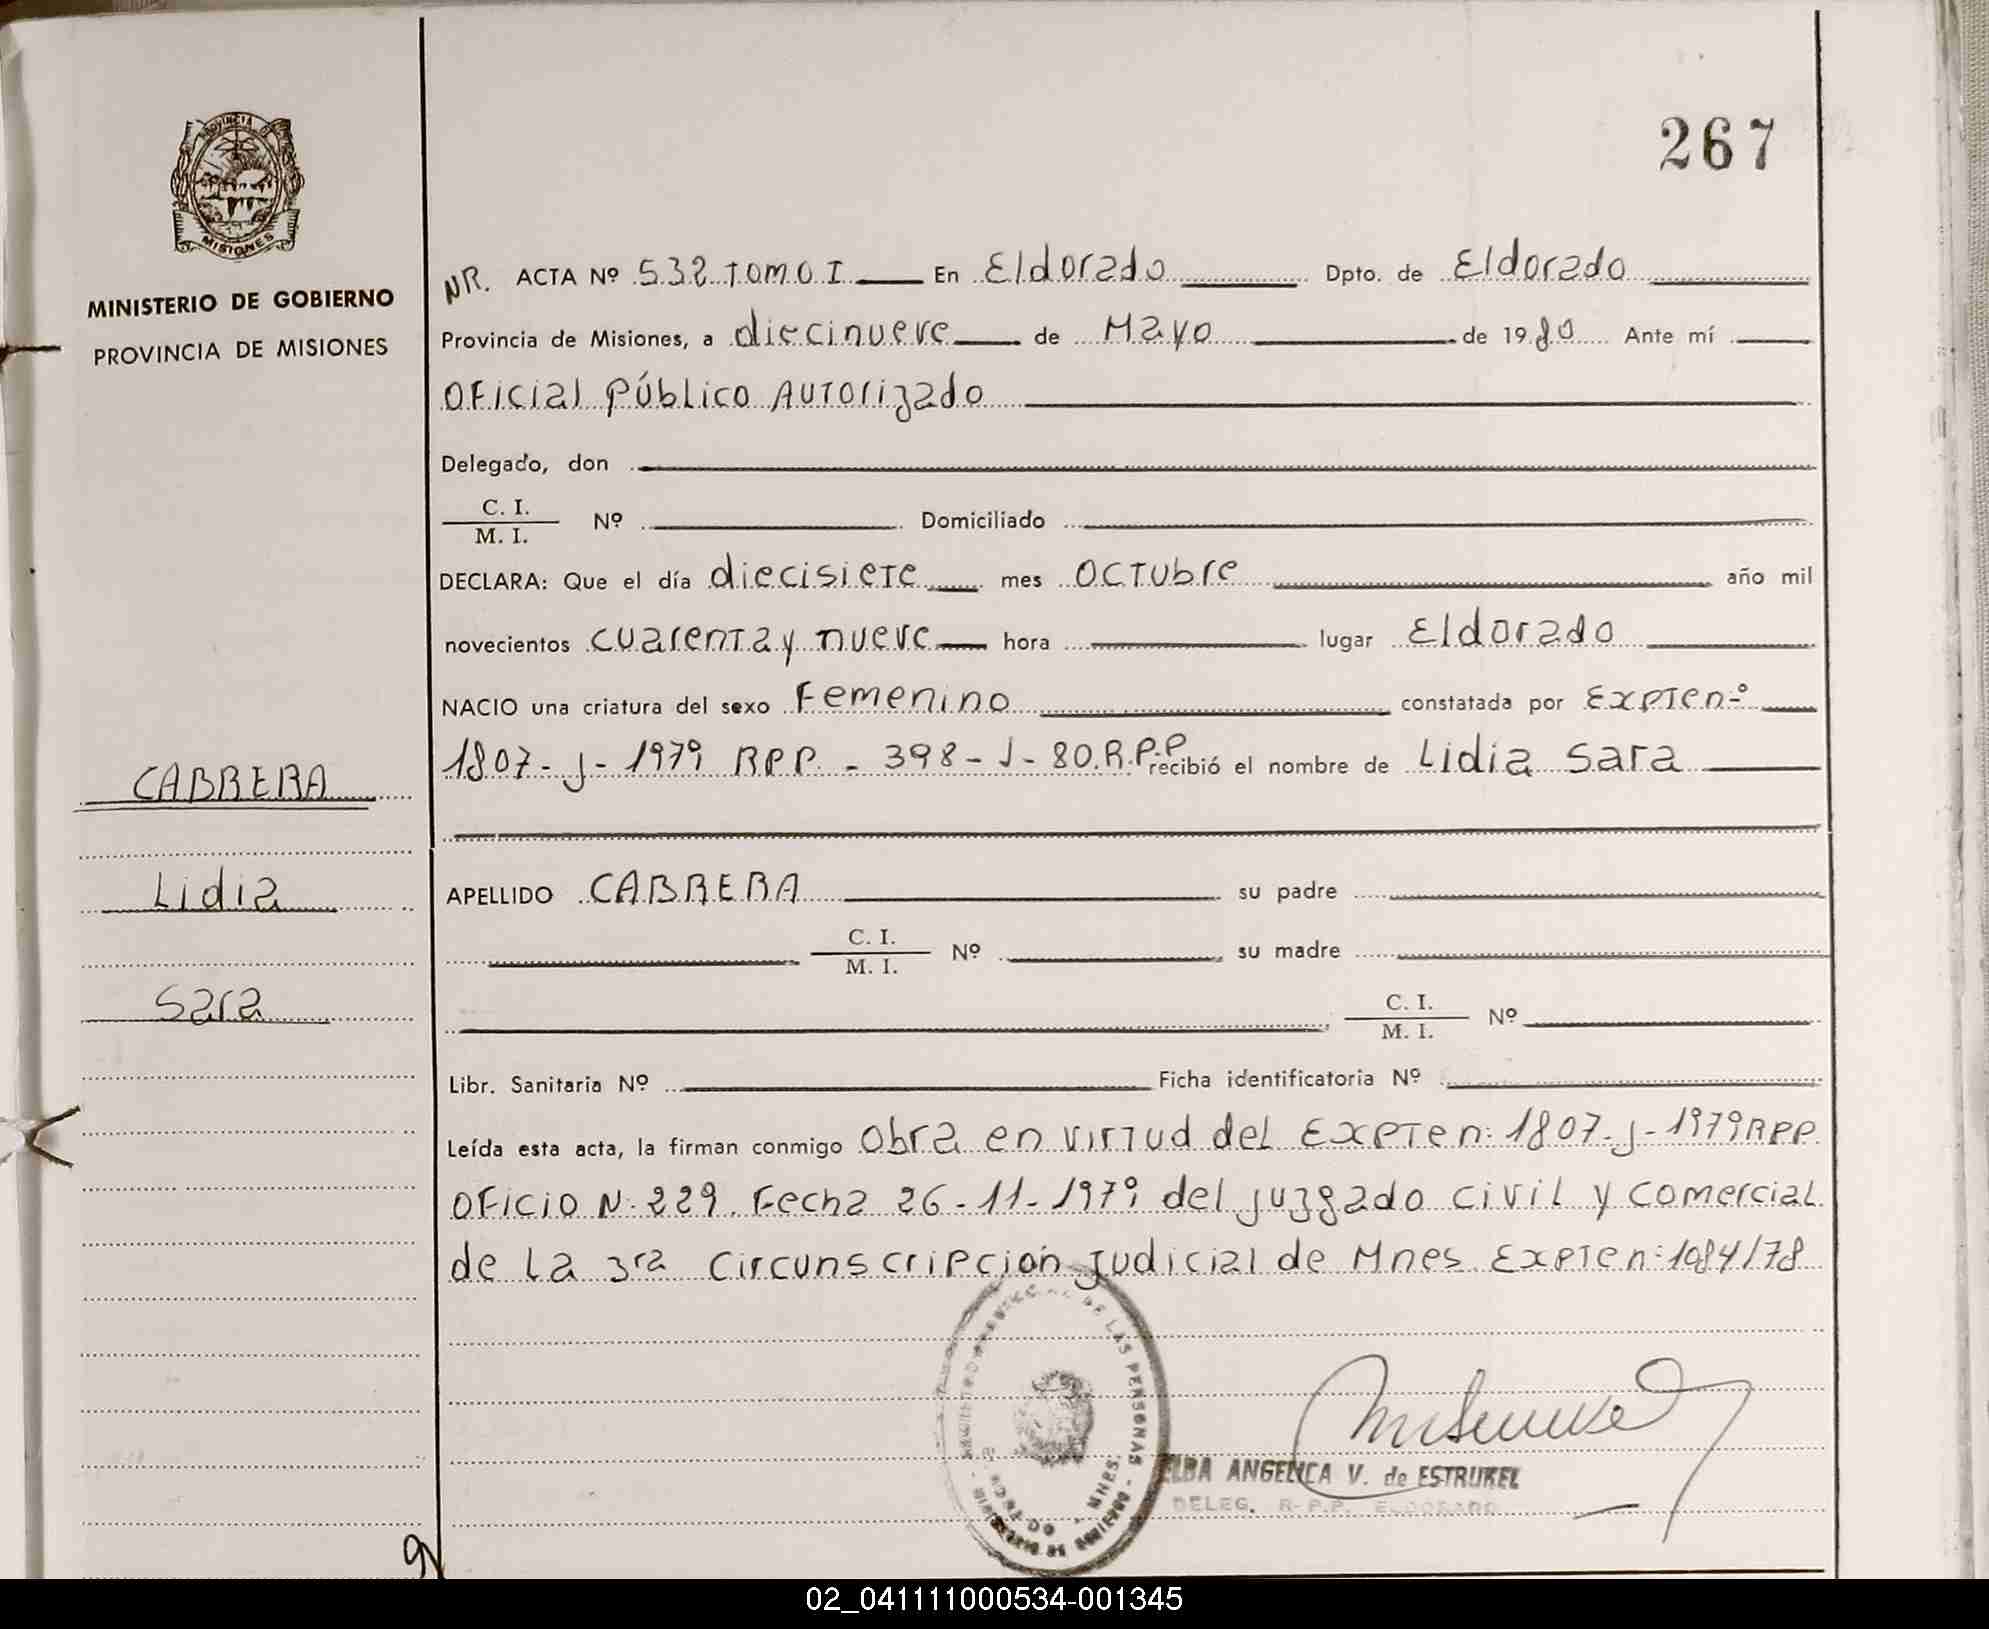 267
PROVINCIA DE
MISIONES
MINISTERIO DE GOBIERNO
PROVINCIA DE MISIONES
NR. ACTA Nº 532 TOMO I En Eldorado Dpto. de Eldorado
Provincia de Misiones, a diecinueve de Mayo de 1980 Ante mí
Oficial Público Autorizado
Delegado, don
C. I.
M. I. Nº Domiciliado
DECLARA: Que el día diecisiete mes Octubre año mil
novecientos cuarenta y nueve hora lugar Eldorado
NACIO una criatura del sexo Femenino constatada por Expten:º
1807-J-1979 RPP - 398-J-80.R.P.P recibió el nombre de Lidia Sara
CABRERA
Lidia
Sara
APELLIDO CABRERA su padre
C. I.
M. I. Nº su madre
C. I.
M. I. Nº
Libr. Sanitaria Nº Ficha identificatoria Nº
Leída esta acta, la firman conmigo Obra en virtud del Expten: 1807-J-1979 RPP
Oficio N: 229. Fecha 26-11-1979 del juzgado civil y comercial
de la 3ra Circunscripción Judicial de Mnes Expten: 1084/78
DE LAS PERSONAS
MNES.
ELBA ANGELICA V. de ESTRUKEL
DELEG. R.P.P. ELDORADO
02_041111000534-001345